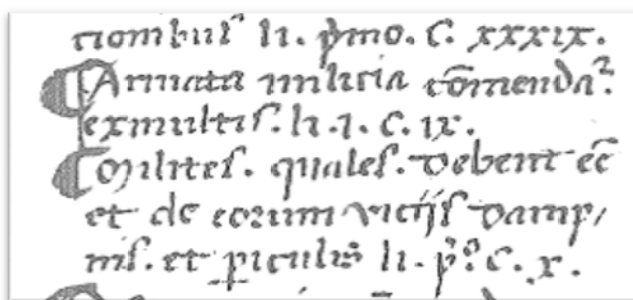 tionibus li. p̃mo. C. xxxix.
¶ Armata milicia cōmendat᷑.
ex multis. li. 1. C. ix.
¶ Milites. quales. debent ēē
et de eorum vicijs damp/
nis. et ꝑiculis li. pº. C. x.